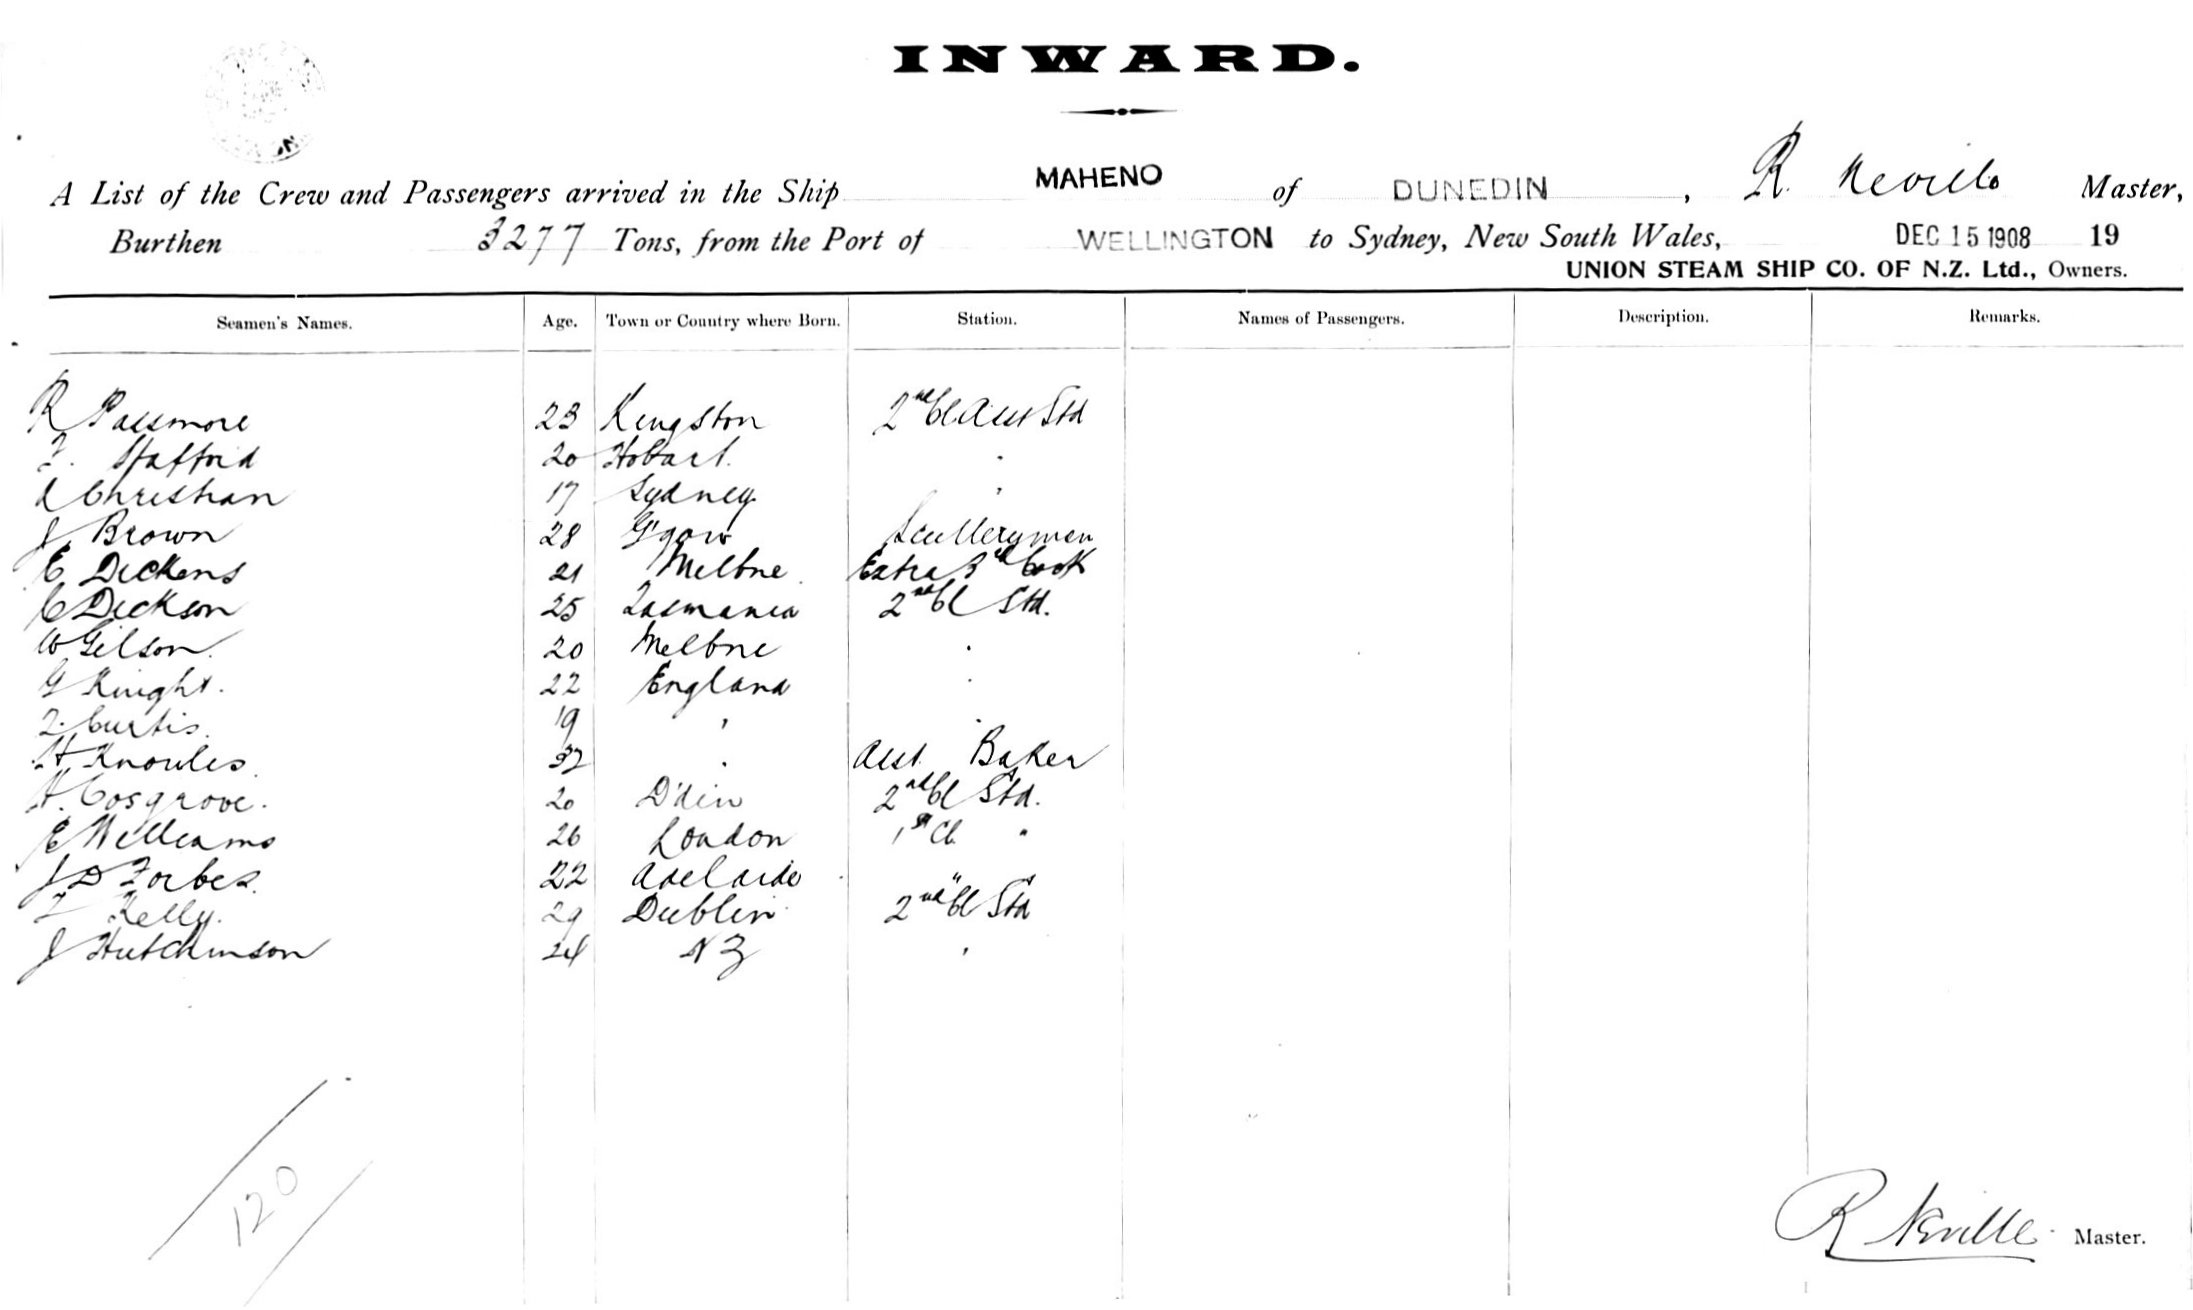 INWARD.
A List of the Crew and Passengers arrived in the Ship MAHENO of DUNEDIN, R. Neville Master,
Burthen 3277 Tons, from the Port of WELLINGTON to Sydney, New South Wales, DEC 15 1908 19
UNION STEAM SHIP CO. OF N.Z. Ltd., Owners.
Seamen's Names. Age. Town or Country where Born. Station. Names of Passengers. Description. Remarks.
R Passmore 23 Kingston 2nd Cl Asst Std
F. Stafford 20 Hobart. "
A Christian 17 Sydney "
J Brown 28 G'gow Scullerymen
E Dickens 21 Melbne Extra 3rd Cook
C Dickson 25 Tasmania 2nd Cl Std.
W Gilson. 20 Melbne "
G Knight. 22 England "
Curtis. 19 " "
H Knowles. 37 " Asst. Baker
H. Cosgrove. 20 D'din 2nd Cl Std.
E Williams 26 London 1st Cl. "
J D Forbes. 22 Adelaide "
Kelly. 29 Dublin 2nd Cl Std
J Hutchinson 24 NZ "
120
R Neville Master.